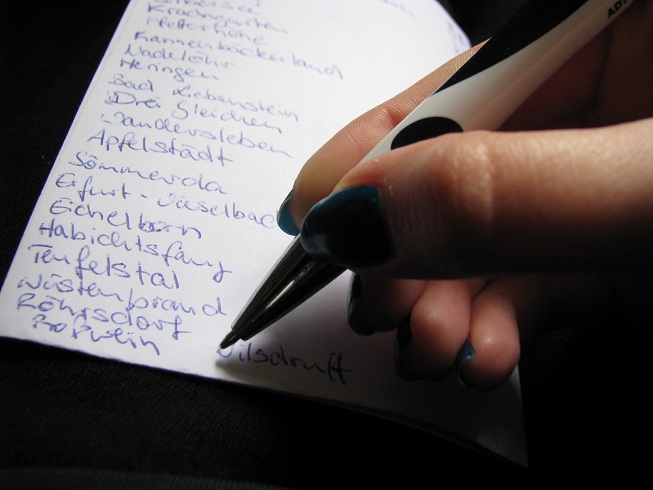 Krachgarten
Pfefferhöhe
Kannenbäckerland
Nadelöhr
Heringen
Bad Liebenstein
Drei Gleichen
Sandersleben
Apfelstädt
Sömmerda
Erfurt - Vieselbac
Eichelborn
Habichtsfang
Teufelstal
Wüstenbrand
Röhrsdorf
Roßwein
Wilsdruff